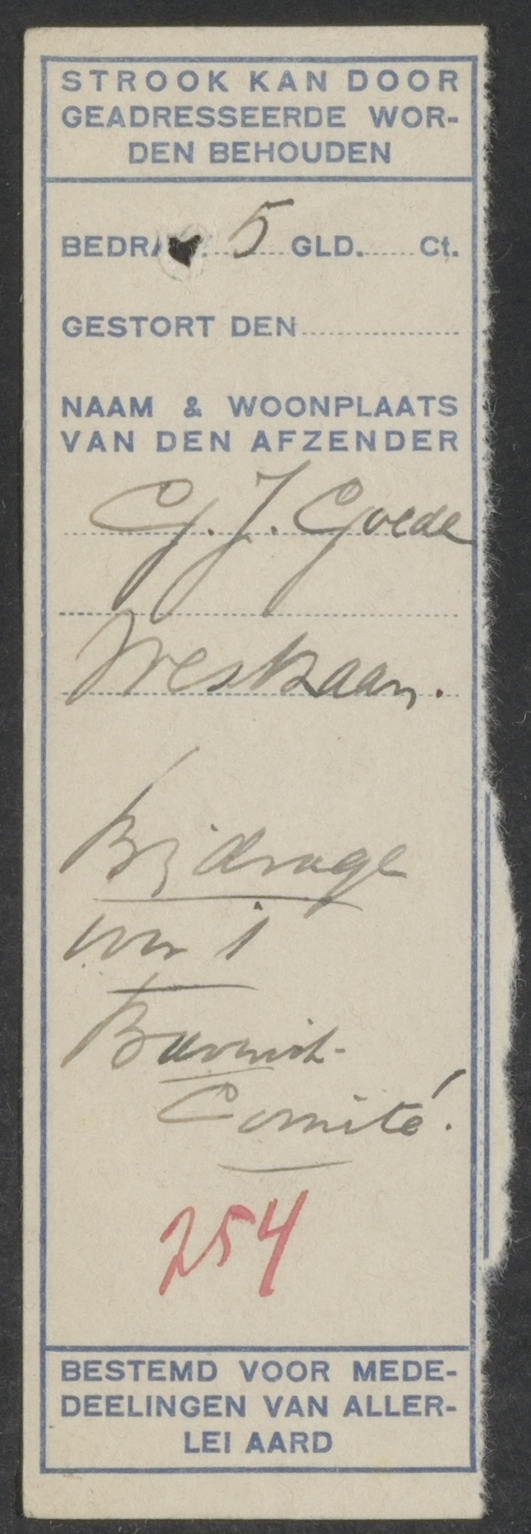 STROOK KAN DOOR
GEADRESSEERDE WOR-
DEN BEHOUDEN
BEDRA 5 GLD. Ct.
GESTORT DEN
NAAM & WOONPLAATS
VAN DEN AFZENDER
G. J. Goede
Westzaan.
Bijdrage
Comité.
254
BESTEMD VOOR MEDE-
DEELINGEN VAN ALLER-
LEI AARD